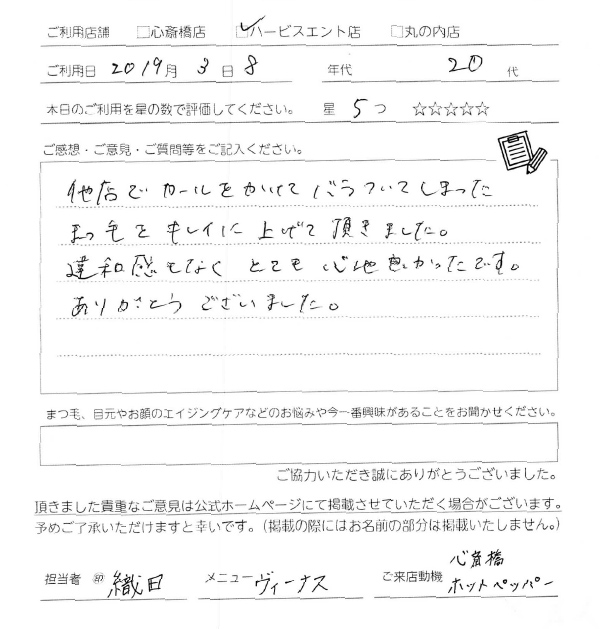 ご利用店舗 □心斎橋店 ☑ハービスエント店 □丸の内店
ご利用日 2019月 3日 8 年代 20代
本日のご利用を星の数で評価してください。 星 5つ ☆☆☆☆☆
ご感想・ご意見・ご質問等をご記入ください。
他店でカールをかけてバラついてしまった
まつ毛をキレイに上げて頂きました。
違和感もなくとても心地良かったです。
ありがとうございました。
まつ毛、目元やお顔のエイジングケアなどのお悩みや今一番興味があることをお聞かせください。
ご協力いただき誠にありがとうございました。
頂きました貴重なご意見は公式ホームページにて掲載させていただく場合がございます。
予めご了承いただけますと幸いです。(掲載の際にはお名前の部分は掲載いたしません。)
心斎橋
担当者 織田 メニュー ヴィーナス ご来店動機 ホットペッパー